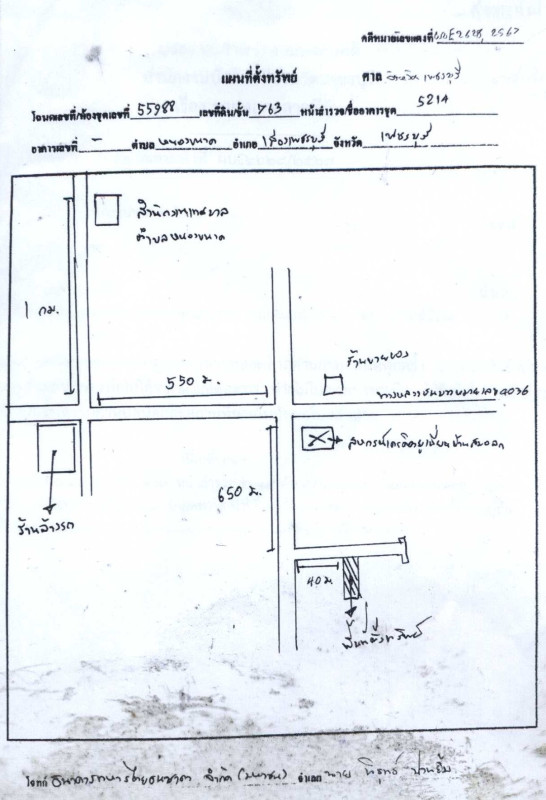 คดีหมายเลขแดงที่ ผบE2628, 2567
แผนที่ตั้งทรัพย์ ศาล จังหวัดเพชรบุรี
โฉนดเลขที่/ห้องชุดเลขที่ 55988 เลขที่ดิน/ชั้น 763 หน้าสำรวจ/ชื่ออาคารชุด 5214
อาคารเลขที่ - ตำบล หนองขนาด อำเภอ เมืองเพชรบุรี จังหวัด เพชรบุรี
สำนักงานเทศบาล
ตำบลหนองขนาด
1 กม.
ร้านขายของ
550 ม.
ทางหลวงชนบทหมายเลข 4036
สหกรณ์เครดิตยูเนี่ยนบ้านสมอลก
650 ม.
ร้านล้างรถ
40 ม
พื้นที่ตั้งทรัพย์
โจทก์ ธนาคารทหารไทยธนชาต จำกัด (มหาชน) จำเลย นาย